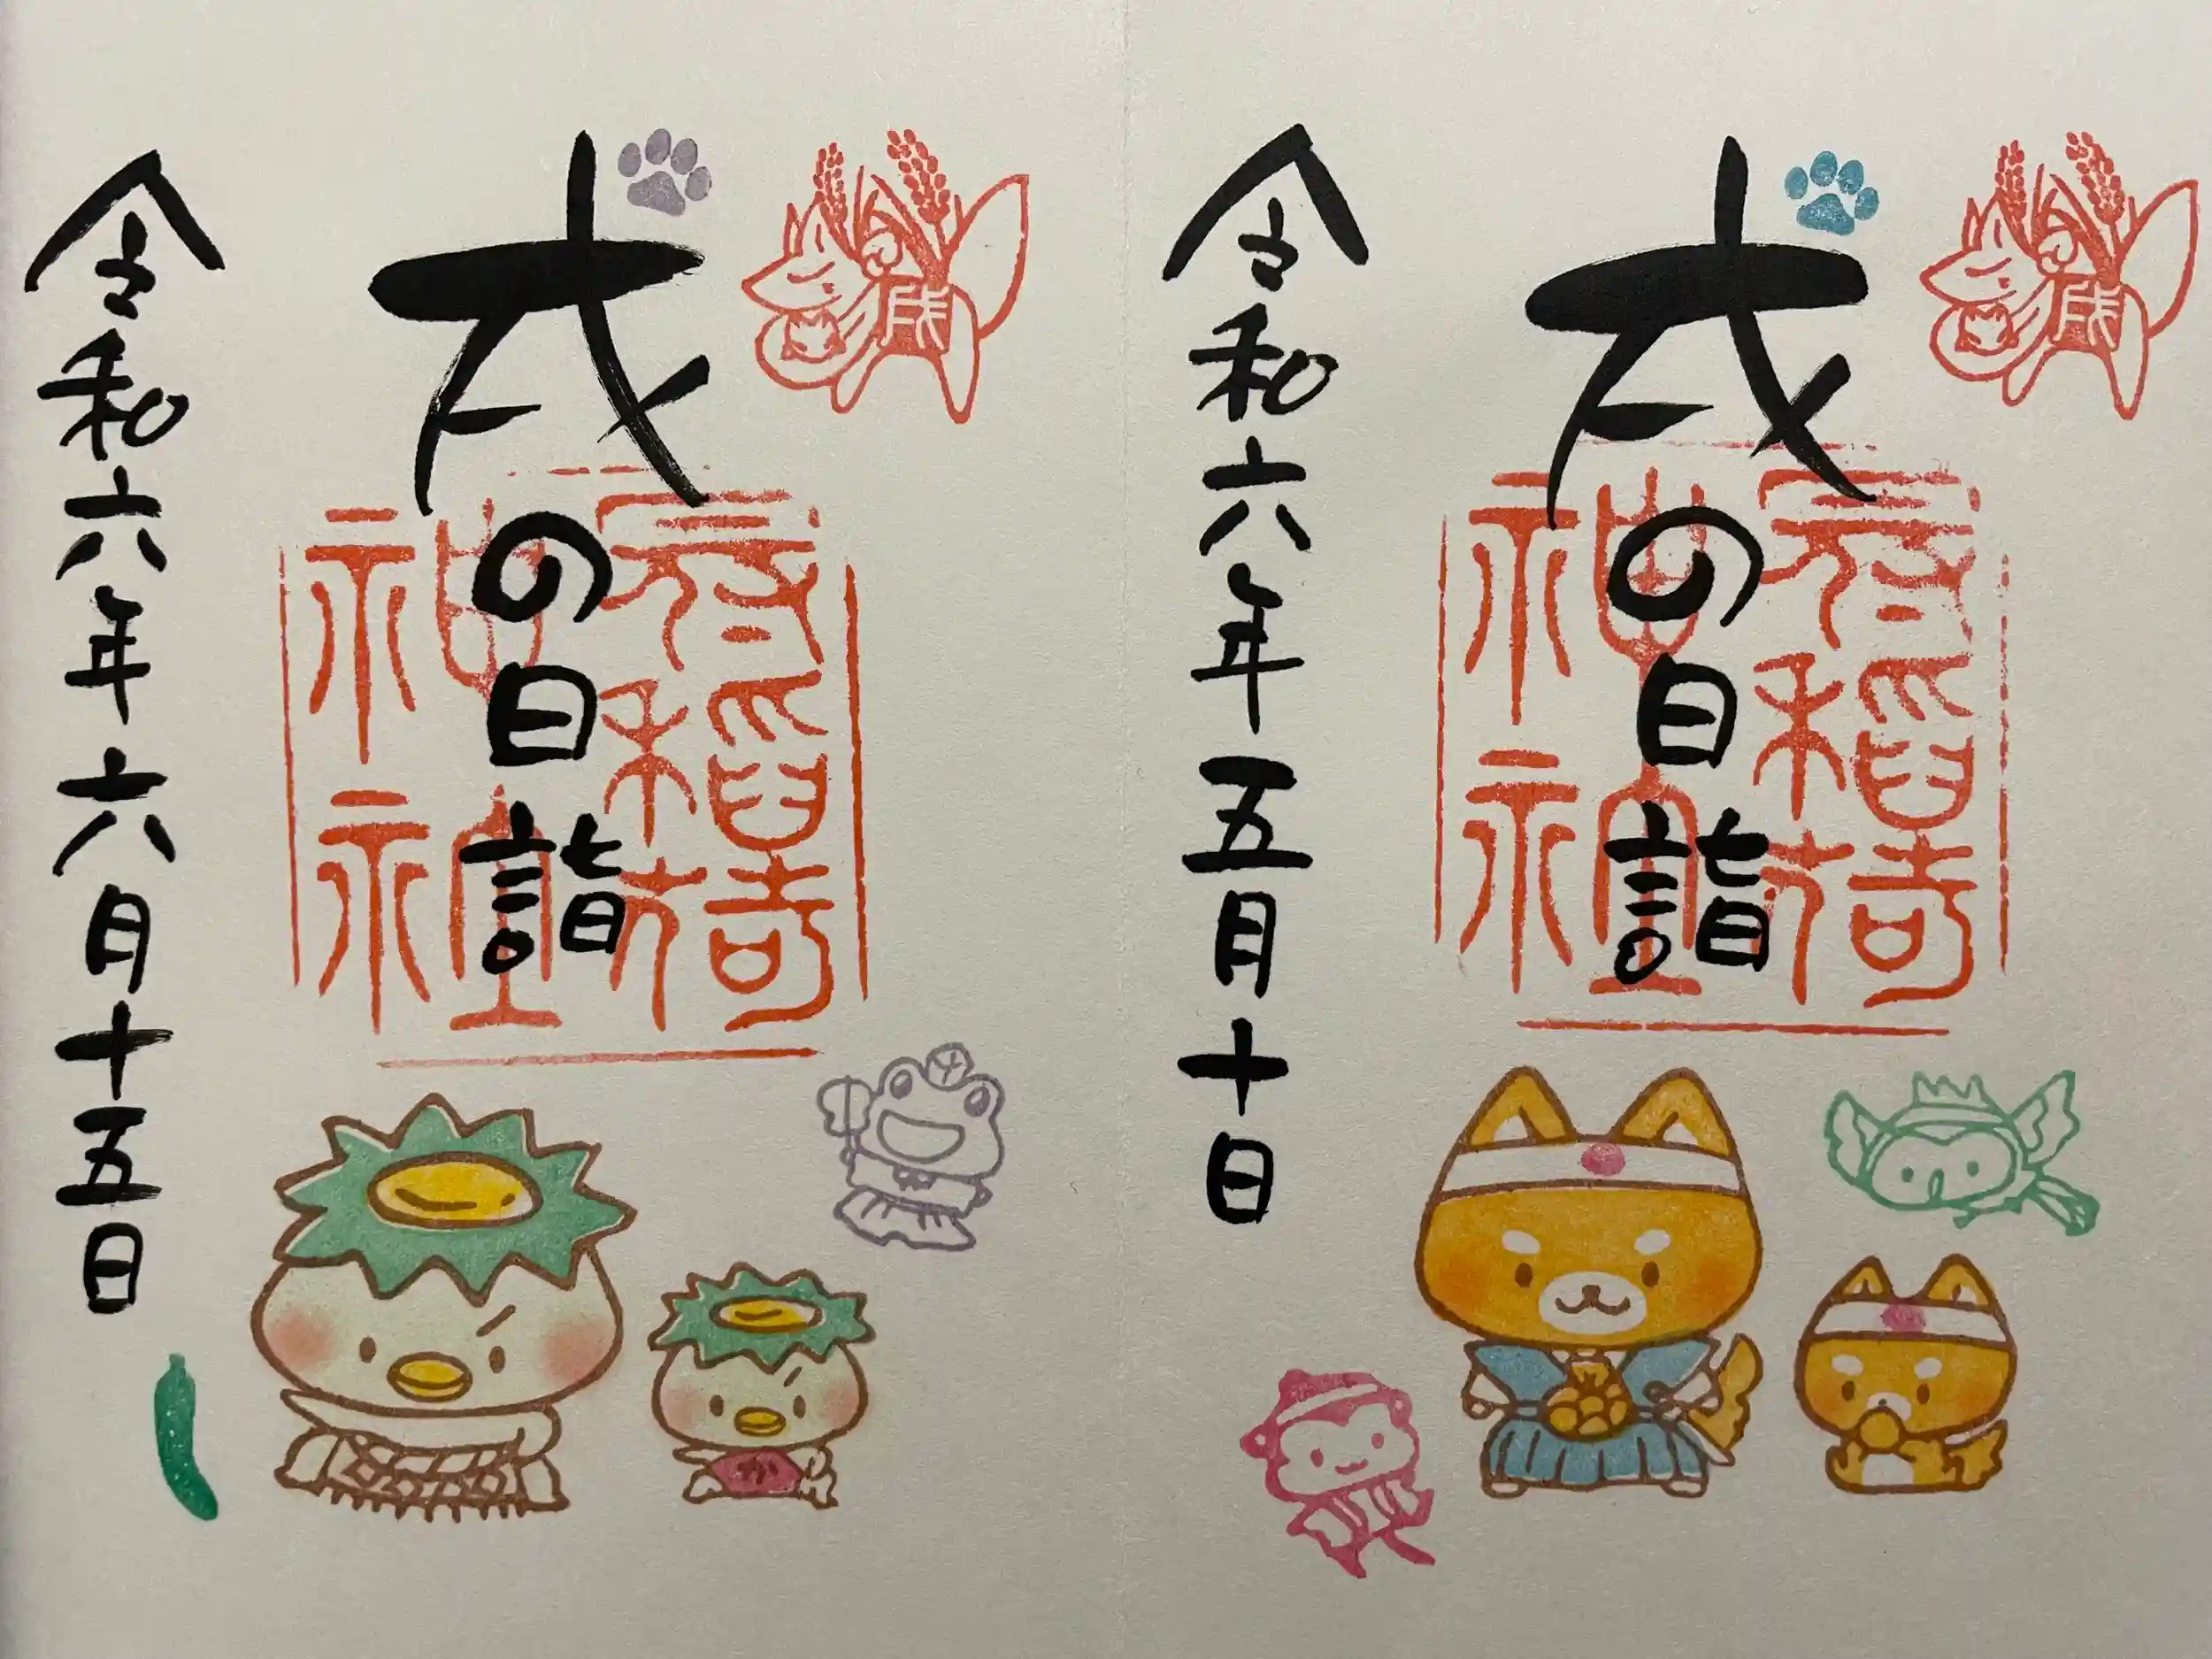 戌
戌の日詣
稲荷
神社
令和六年五月十日
戌
戌の日詣
稲荷
神社
令和六年六月十五日